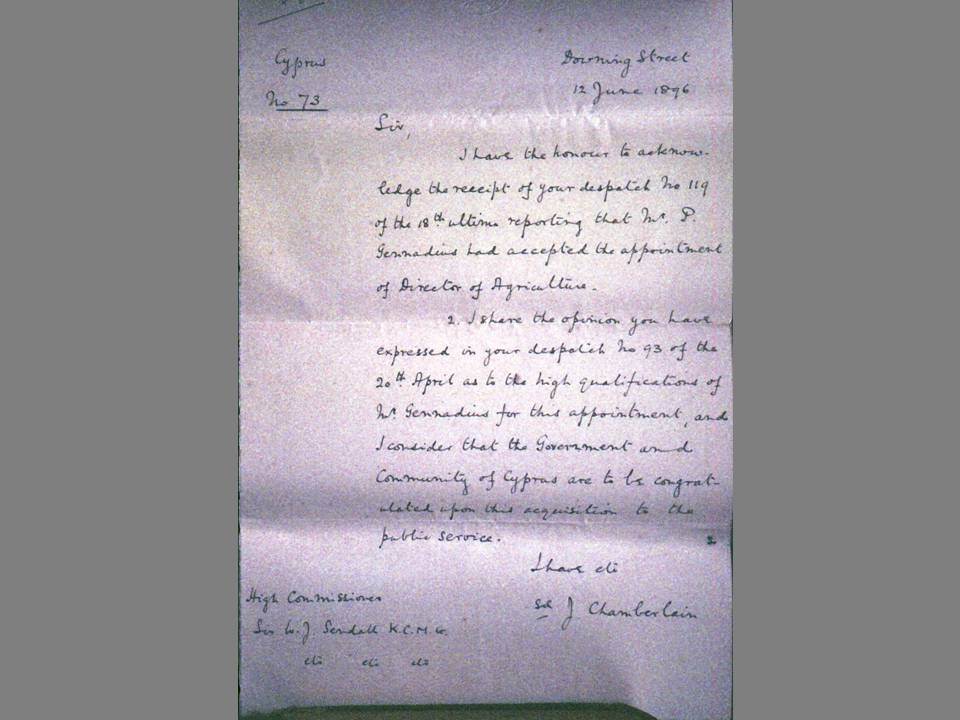 Cyprus
No 73
Downing Street
12 June 1896
Sir,
I have the honour to acknow-
ledge the receipt of your despatch No 119
of the 18th ultimo reporting that Mr. P.
Gennadius had accepted the appointment
of Director of Agriculture.
2. I share the opinion you have
expressed in your despatch No 93 of the
20th April as to the high qualifications of
Mr. Gennadius for this appointment, and
I consider that the Government and
Community of Cyprus are to be congrat-
ulated upon this acquisition to the
public service.
I have etc
Sd J Chamberlain
High Commissioner
Sir W. J. Sendall K.C.M.G.
etc etc etc